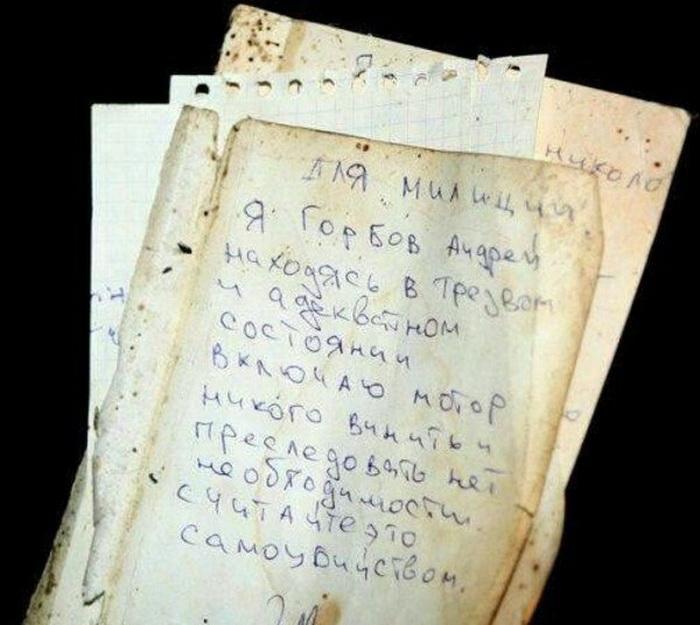 николо
для милиции.
Я Горбов Андрей
находясь в трезвом
и адекватном
состоянии
включаю мотор
никого винить и
преследовать нет
необходимости.
считайте это
самоубийством.